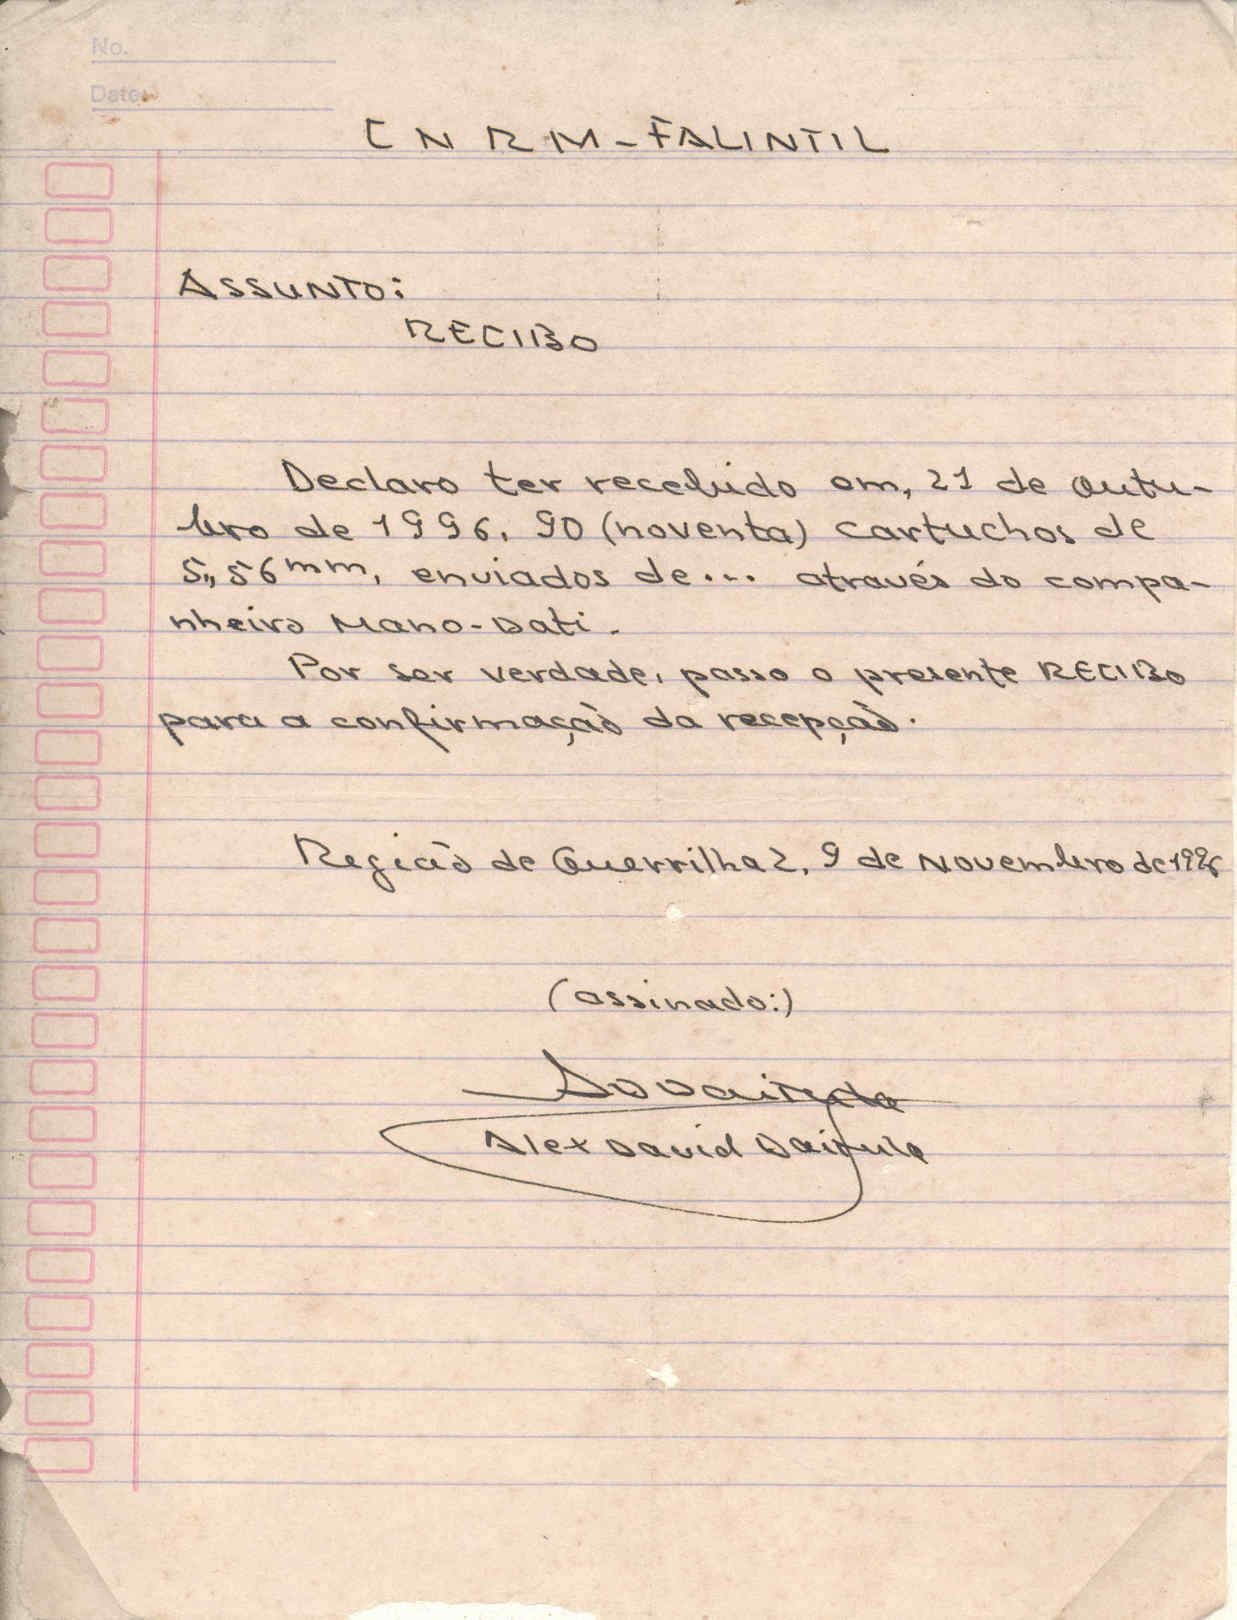 No.
Date:
CNRM-FALINTIL
ASSUNTO:
RECIBO
Declaro ter recebido em, 21 de Outu-
bro de 1996, 90 (noventa) cartuchos de
5,,56mm, enviados de... através do compa-
nheiro Mano-Dati.
Por ser verdade, passo o presente RECIBO
para a confirmação da recepção.
Região de Guerrilha 2, 9 de Novembro de 1996
(assinado:)
Alex David Daitula